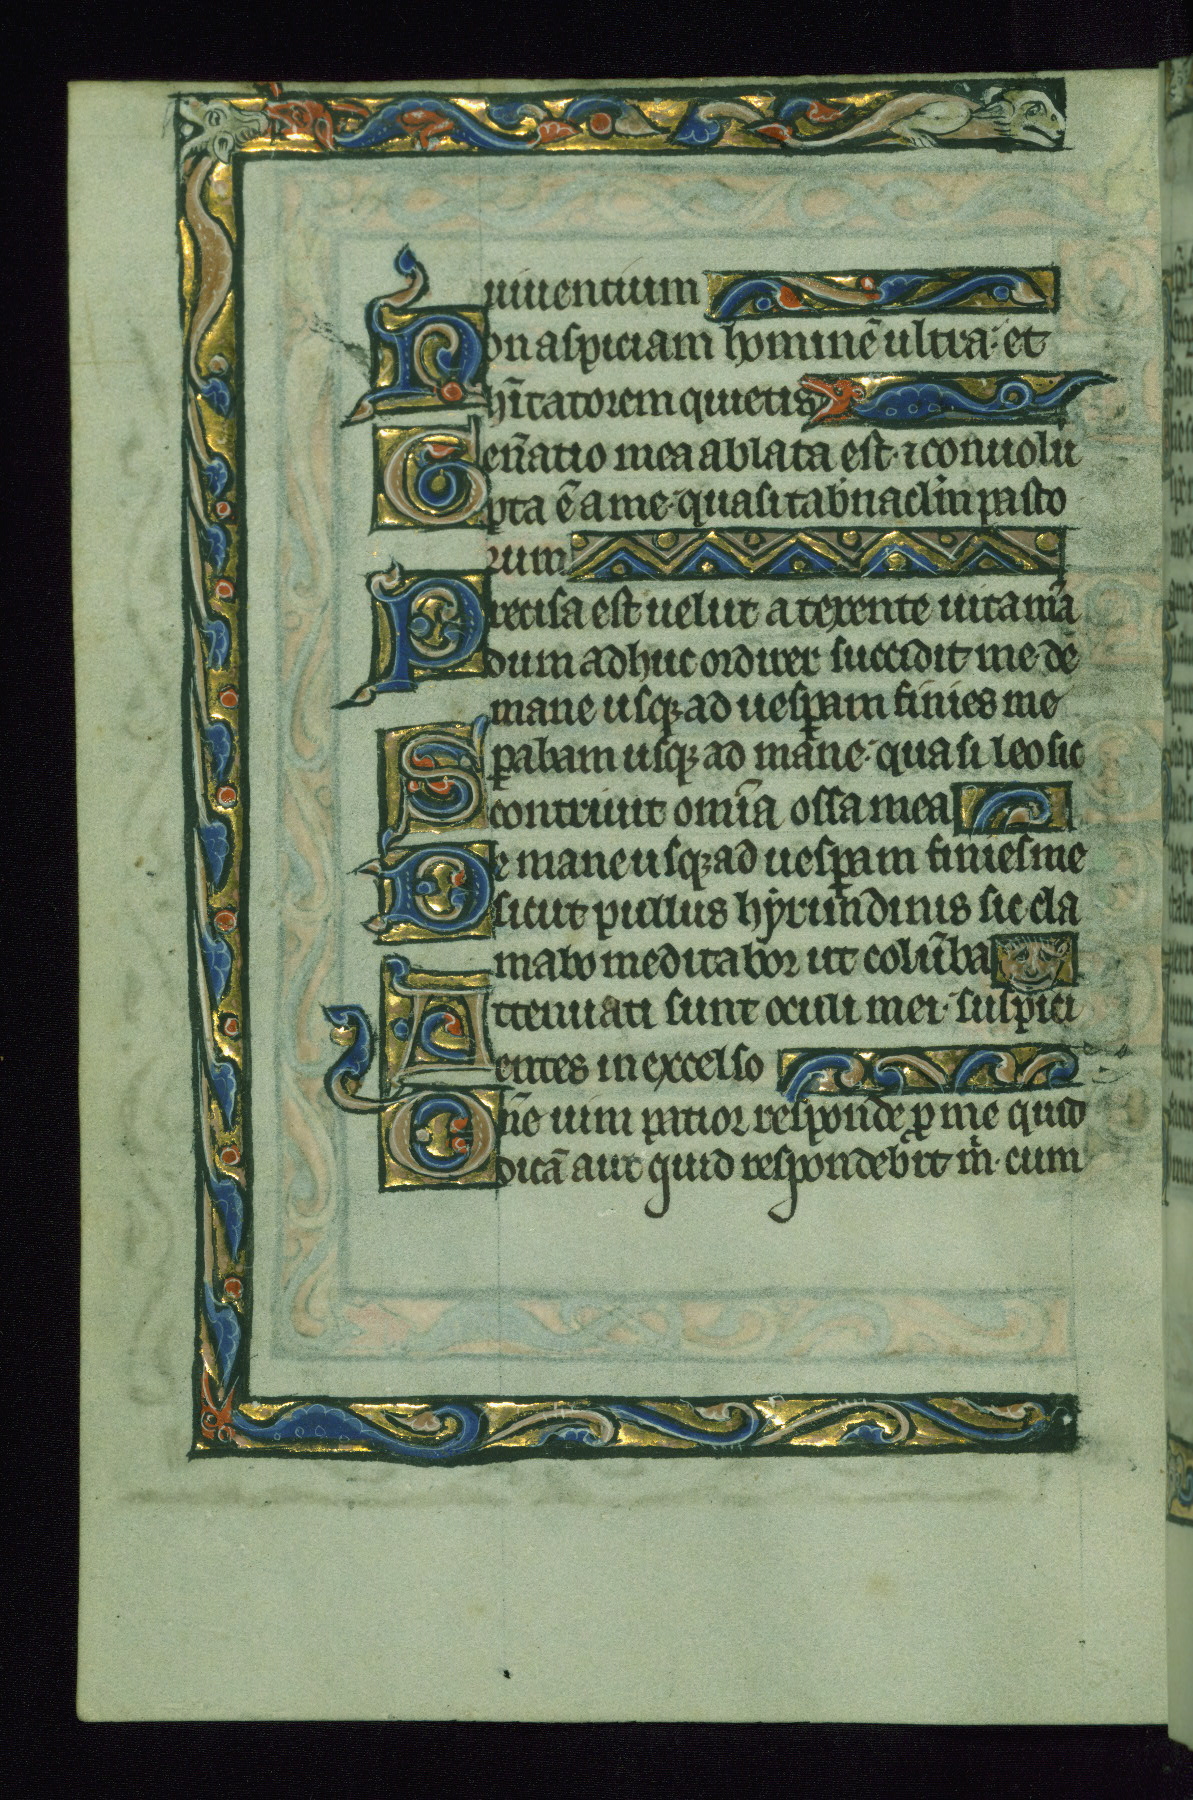 uiuentium
Non aspiciam hominē ultra· et
hītatorem quietis
Gen̄atio mea ablata est· ⁊ conuolu
pta ē a me· quasi tab̄nacl̄m pasto
rum
Precisa est uelut a texente uita m̄a
dum adhuc ordirer succidit me· de
mane usq; ad uesꝑam finies me
Sꝑabam usq; ad mane· quasi leo sic
contriuit om̄ia ossa mea
De mane usq; ad uesꝑam finies me
sicut pullus hyrundinis sic cla
mabo meditabor ut colūba
Attenuati sunt oculi mei· suspici
entes in excelso
Dn̄e uim patior responde ꝑ me quid
dicā aut quid respondeb̄it m̄· cum